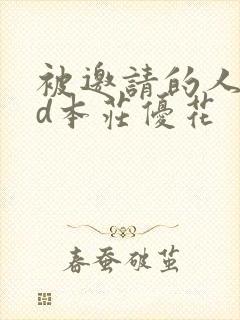 被邀請的人
d本莊優花
春蚕破茧